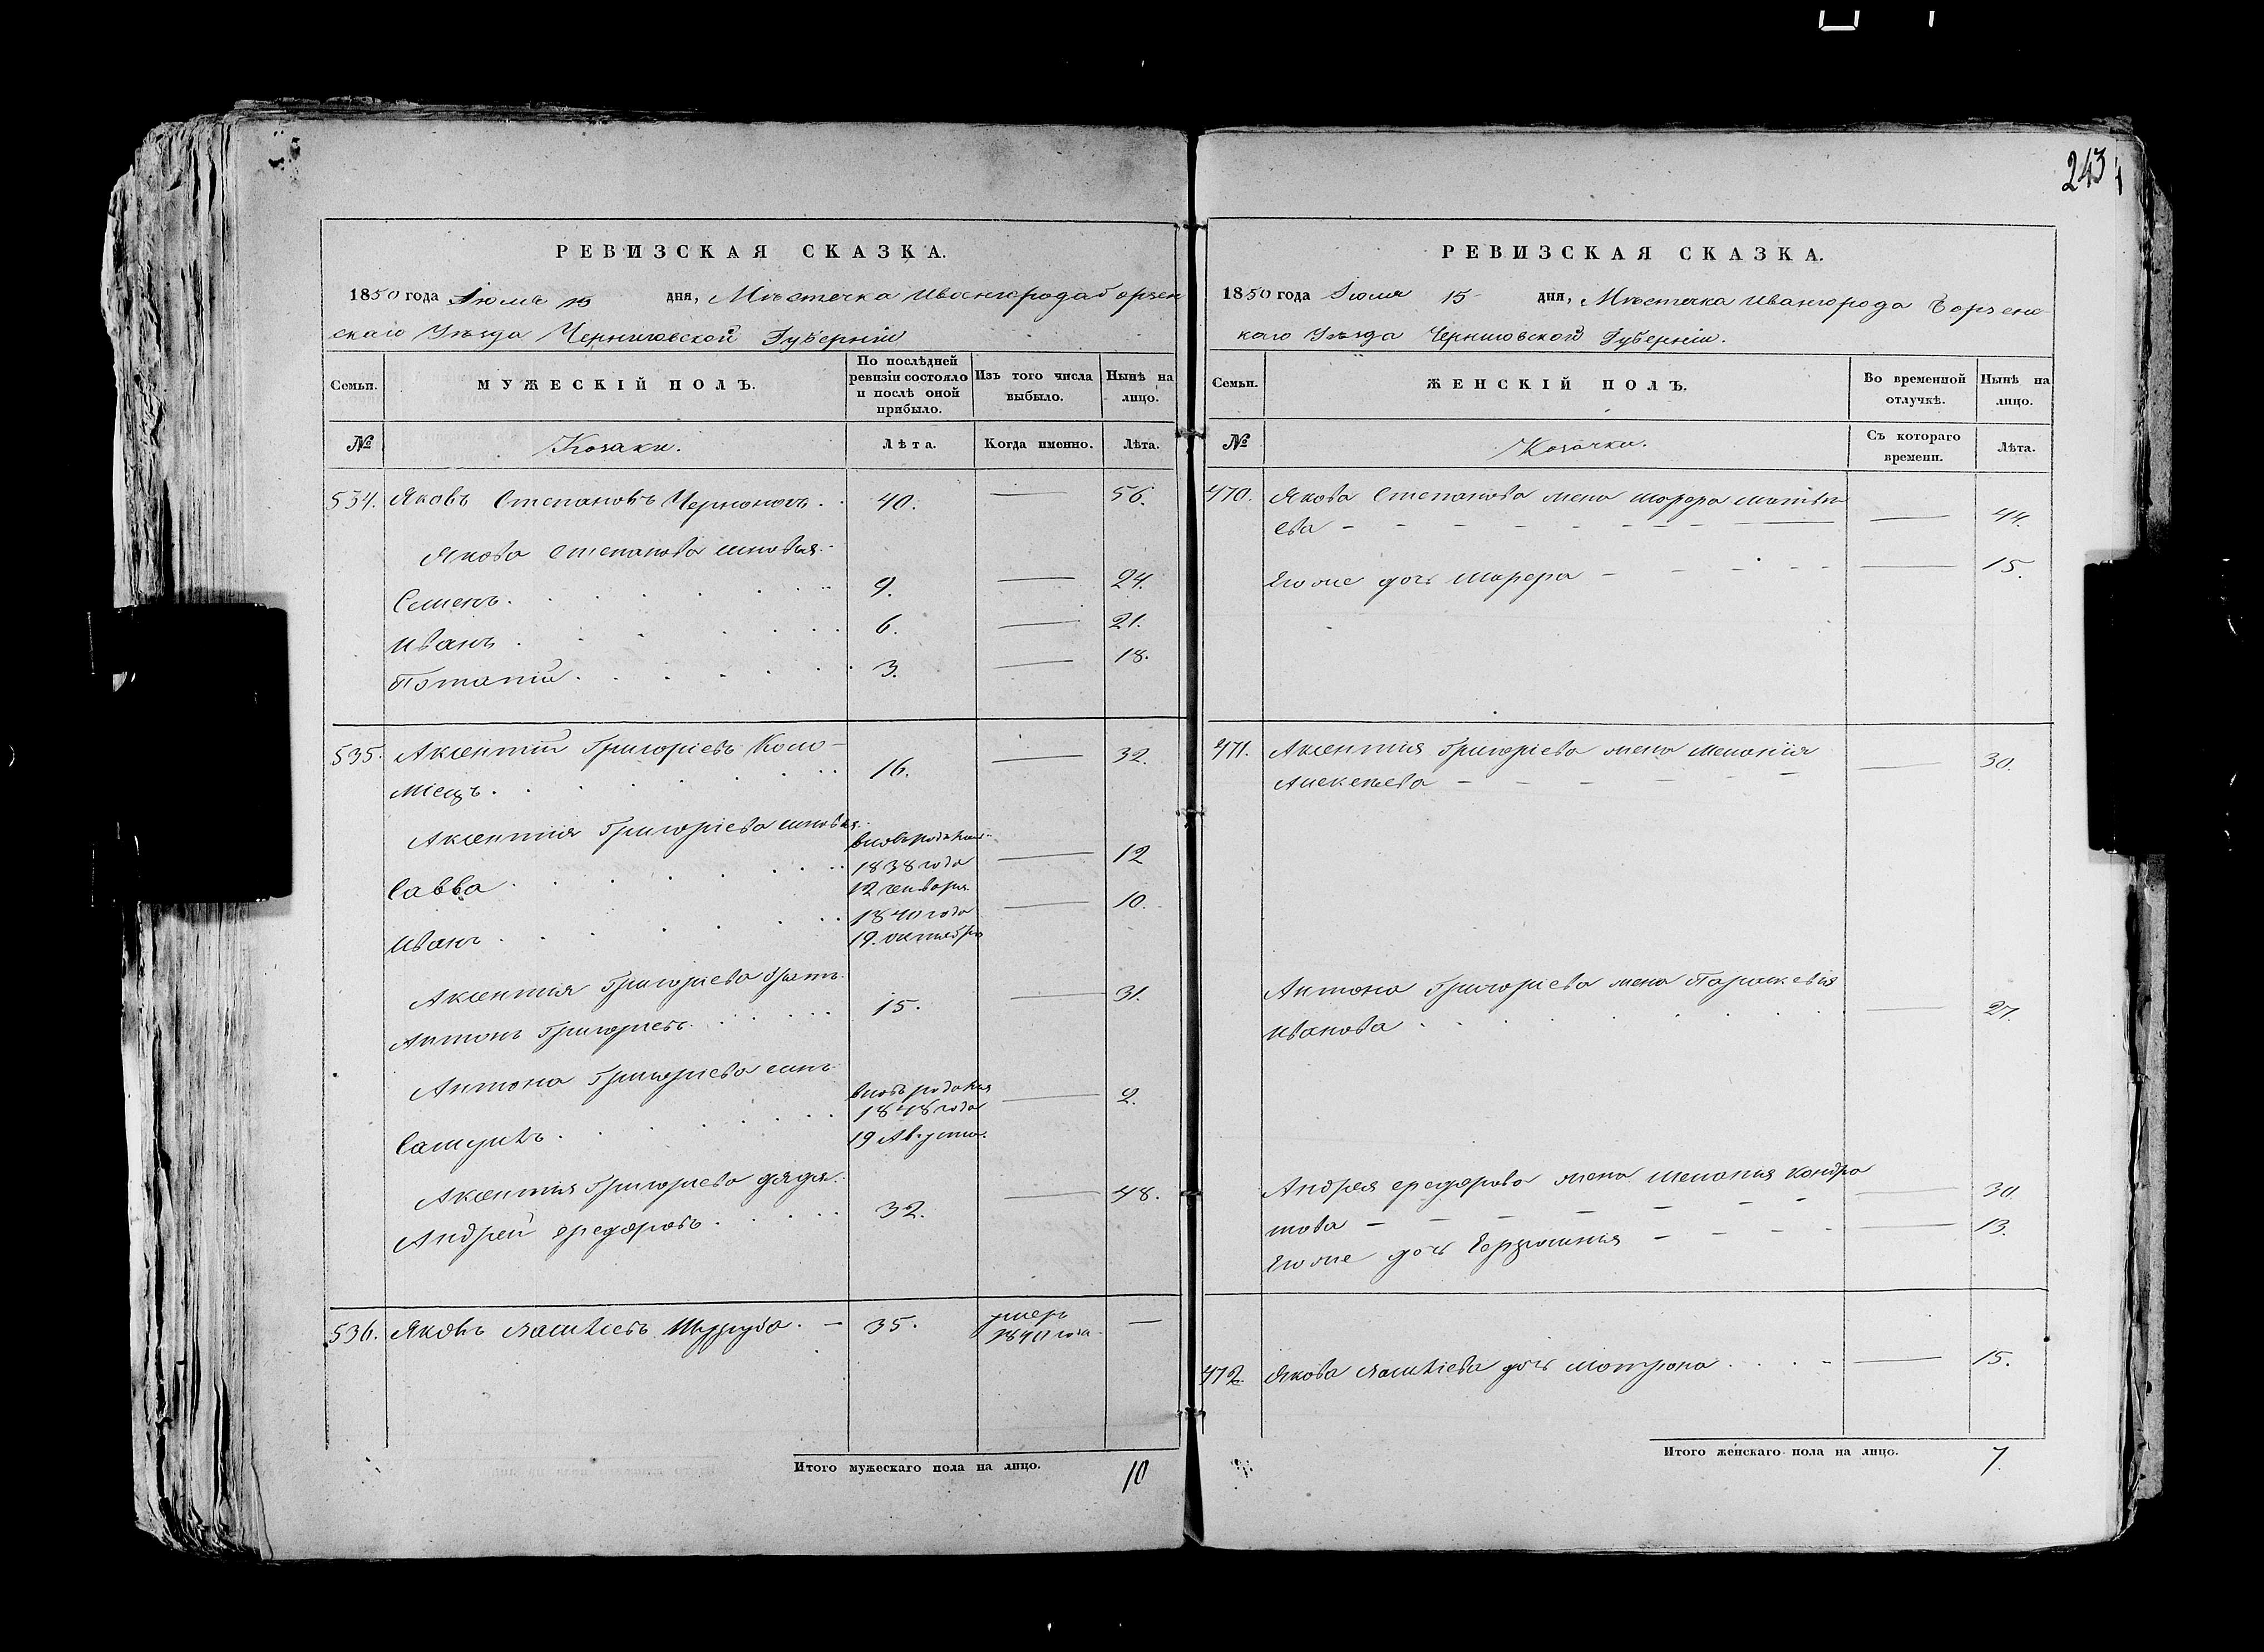 243
РЕВИЗСКАЯ СКАЗКА.
1850 года Іюля 15 дня, Мѣстечка Ивангорода Борзен
скаго Уѣзда Черниговской Губерніи
Семьи.
МУЖЕСКІЙ ПОЛЪ.
По послѣдней ревизіи состояло и послѣ оной прибыло.
Изъ того числа выбыло.
Нынѣ на лицо.
№
Козаки.
Лѣта.
Когда именно.
Лѣта.
534. Яковъ Степановъ . 40. — 56.
Якова Степанова сыновья.
Семенъ. 9. — 24.
Иванъ. 6. — 21.
Потапій. 3. — 18.
535. Аксентій Григоріевъ Коло-
мiецъ. 16. — 32.
Аксентія Григоріева сыновья.
вновь рожден.
Савва 1838 года — 12
12 генваря
Иванъ 1840 года — 10.
19. октября
Аксентія Григоріева братъ
Антонъ Григорьевъ. 15. — 31.
Антона Григоріева сынъ
вновь рожден
Самуилъ. 1848 года — 2.
19 Августа.
Аксентія Григоріева дядя.
Андрей Федоровъ. 32. — 48.
536. Яковъ . — 35. умеръ —
1840 года
Итого мужескаго пола на лицо. 10
РЕВИЗСКАЯ СКАЗКА.
1850 года Іюля 15 дня, Мѣстечка Ивангорода Борзенс
каго Уѣзда Черниговской Губерніи.
Семьи.
ЖЕНСКІЙ ПОЛЪ.
Во временной отлучкѣ.
Нынѣ на лицо.
№
Козачки.
Съ котораго времени.
Лѣта.
470. Якова Степанова жена Матвѣ
ева — — 44.
Его же дочь — — 15.
471. Аксентія Григоріева жена Меланія
Алексѣева — — 30.
Антона Григоріева жена Параскевія
Иванова — 27.
Андрея Федорова жена Меланія Кондра
това — — 30
Его же дочь — — 13.
472. Якова дочь Матрона — 15.
Итого женскаго пола на лицо. 7.